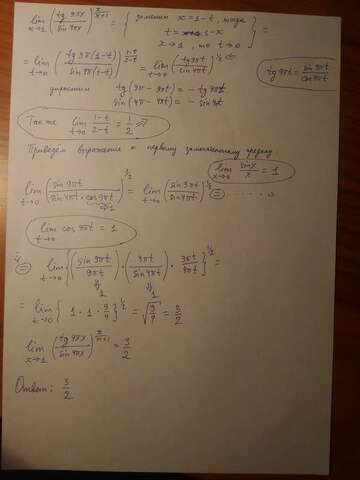 lim x→1 (tg 9πx / sin 4πx)^(x/(x+1)) = { замени x = 1-t, тогда
t = 1-x
x→1, то t→0 } =
= lim t→0 (tg 9π(1-t) / sin 4π(1-t))^((1-t)/(2-t)) = lim t→0 (tg 9πt / sin 4πt)^(1/2)
tg 9πt = sin 9πt / cos 9πt
упростим tg(9π - 9πt) = - tg 9πt
sin(4π - 4πt) = - sin 4πt
Так же lim t→0 (1-t)/(2-t) = 1/2 ⇒
Приведём выражения к первому замечательному пределу
lim x→0 sin x / x = 1
lim t→0 (sin 9πt / (sin 4πt · cos 9πt))^(1/2) = lim t→0 (sin 9πt / sin 4πt)^(1/2) =
lim t→0 cos 9πt = 1
= lim t→0 {(sin 9πt / 9πt) · (4πt / sin 4πt) · 9πt / 4πt}^(1/2) =
1 1
= lim t→0 {1 · 1 · 9/4}^(1/2) = √(9/4) = 3/2
lim x→1 (tg 9πx / sin 4πx)^(x/(x+1)) = 3/2
Ответ: 3/2